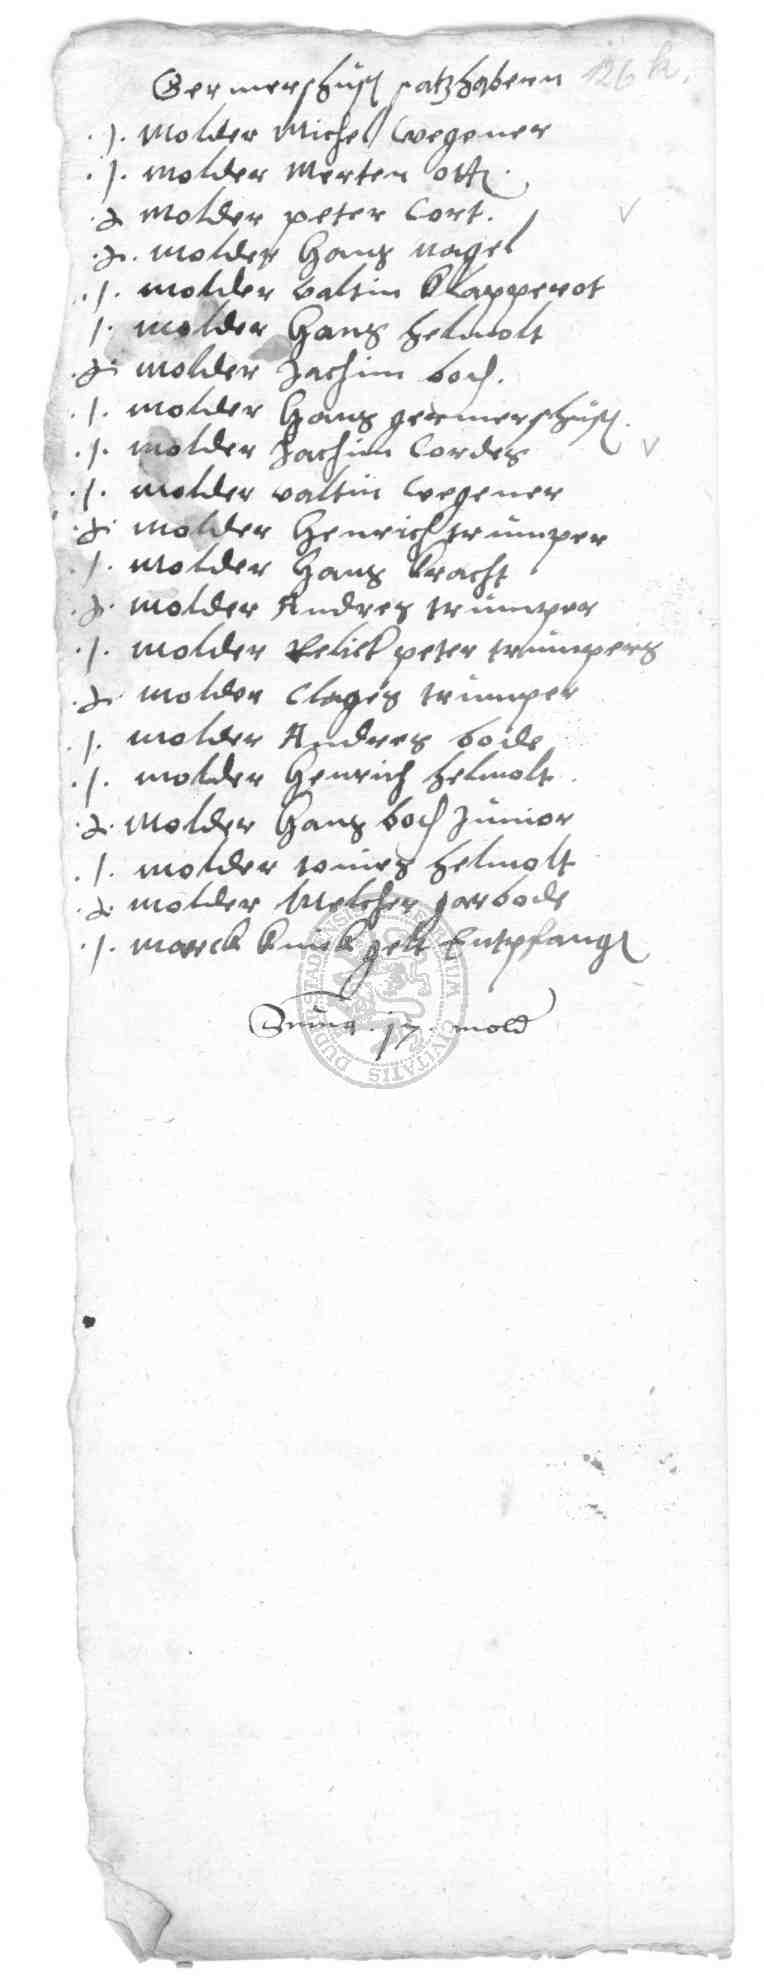 126 k.
Germerschusen satzhabern
.j. molder Michel wegener
.j. molder Merten otte.
.j molder peter Cort.
.j. molder hans nagel
.j. molder valtin klapperot
j. molder hans helmolt
.j. molder Jachim boch.
.j. molder hans germerschusen.
.j. molder Jachim Cordes
.j. molder valtin wegener
.j. molder henrich trumper
.j. molder hans kracht
.j. molder Andres trumper
.j. molder Relict peter trumpers
.j. molder Clages trumper
.j. molder Andres bode
.j. molder henrich helmolt.
.j. molder hans boch Junior
.j. molder tonies helmolt
.j. molder Melcher garbode
.j. marck knick gelt Entpfangen
Summa .17. mold
DUDERSTADIENSIS CIVITATIS